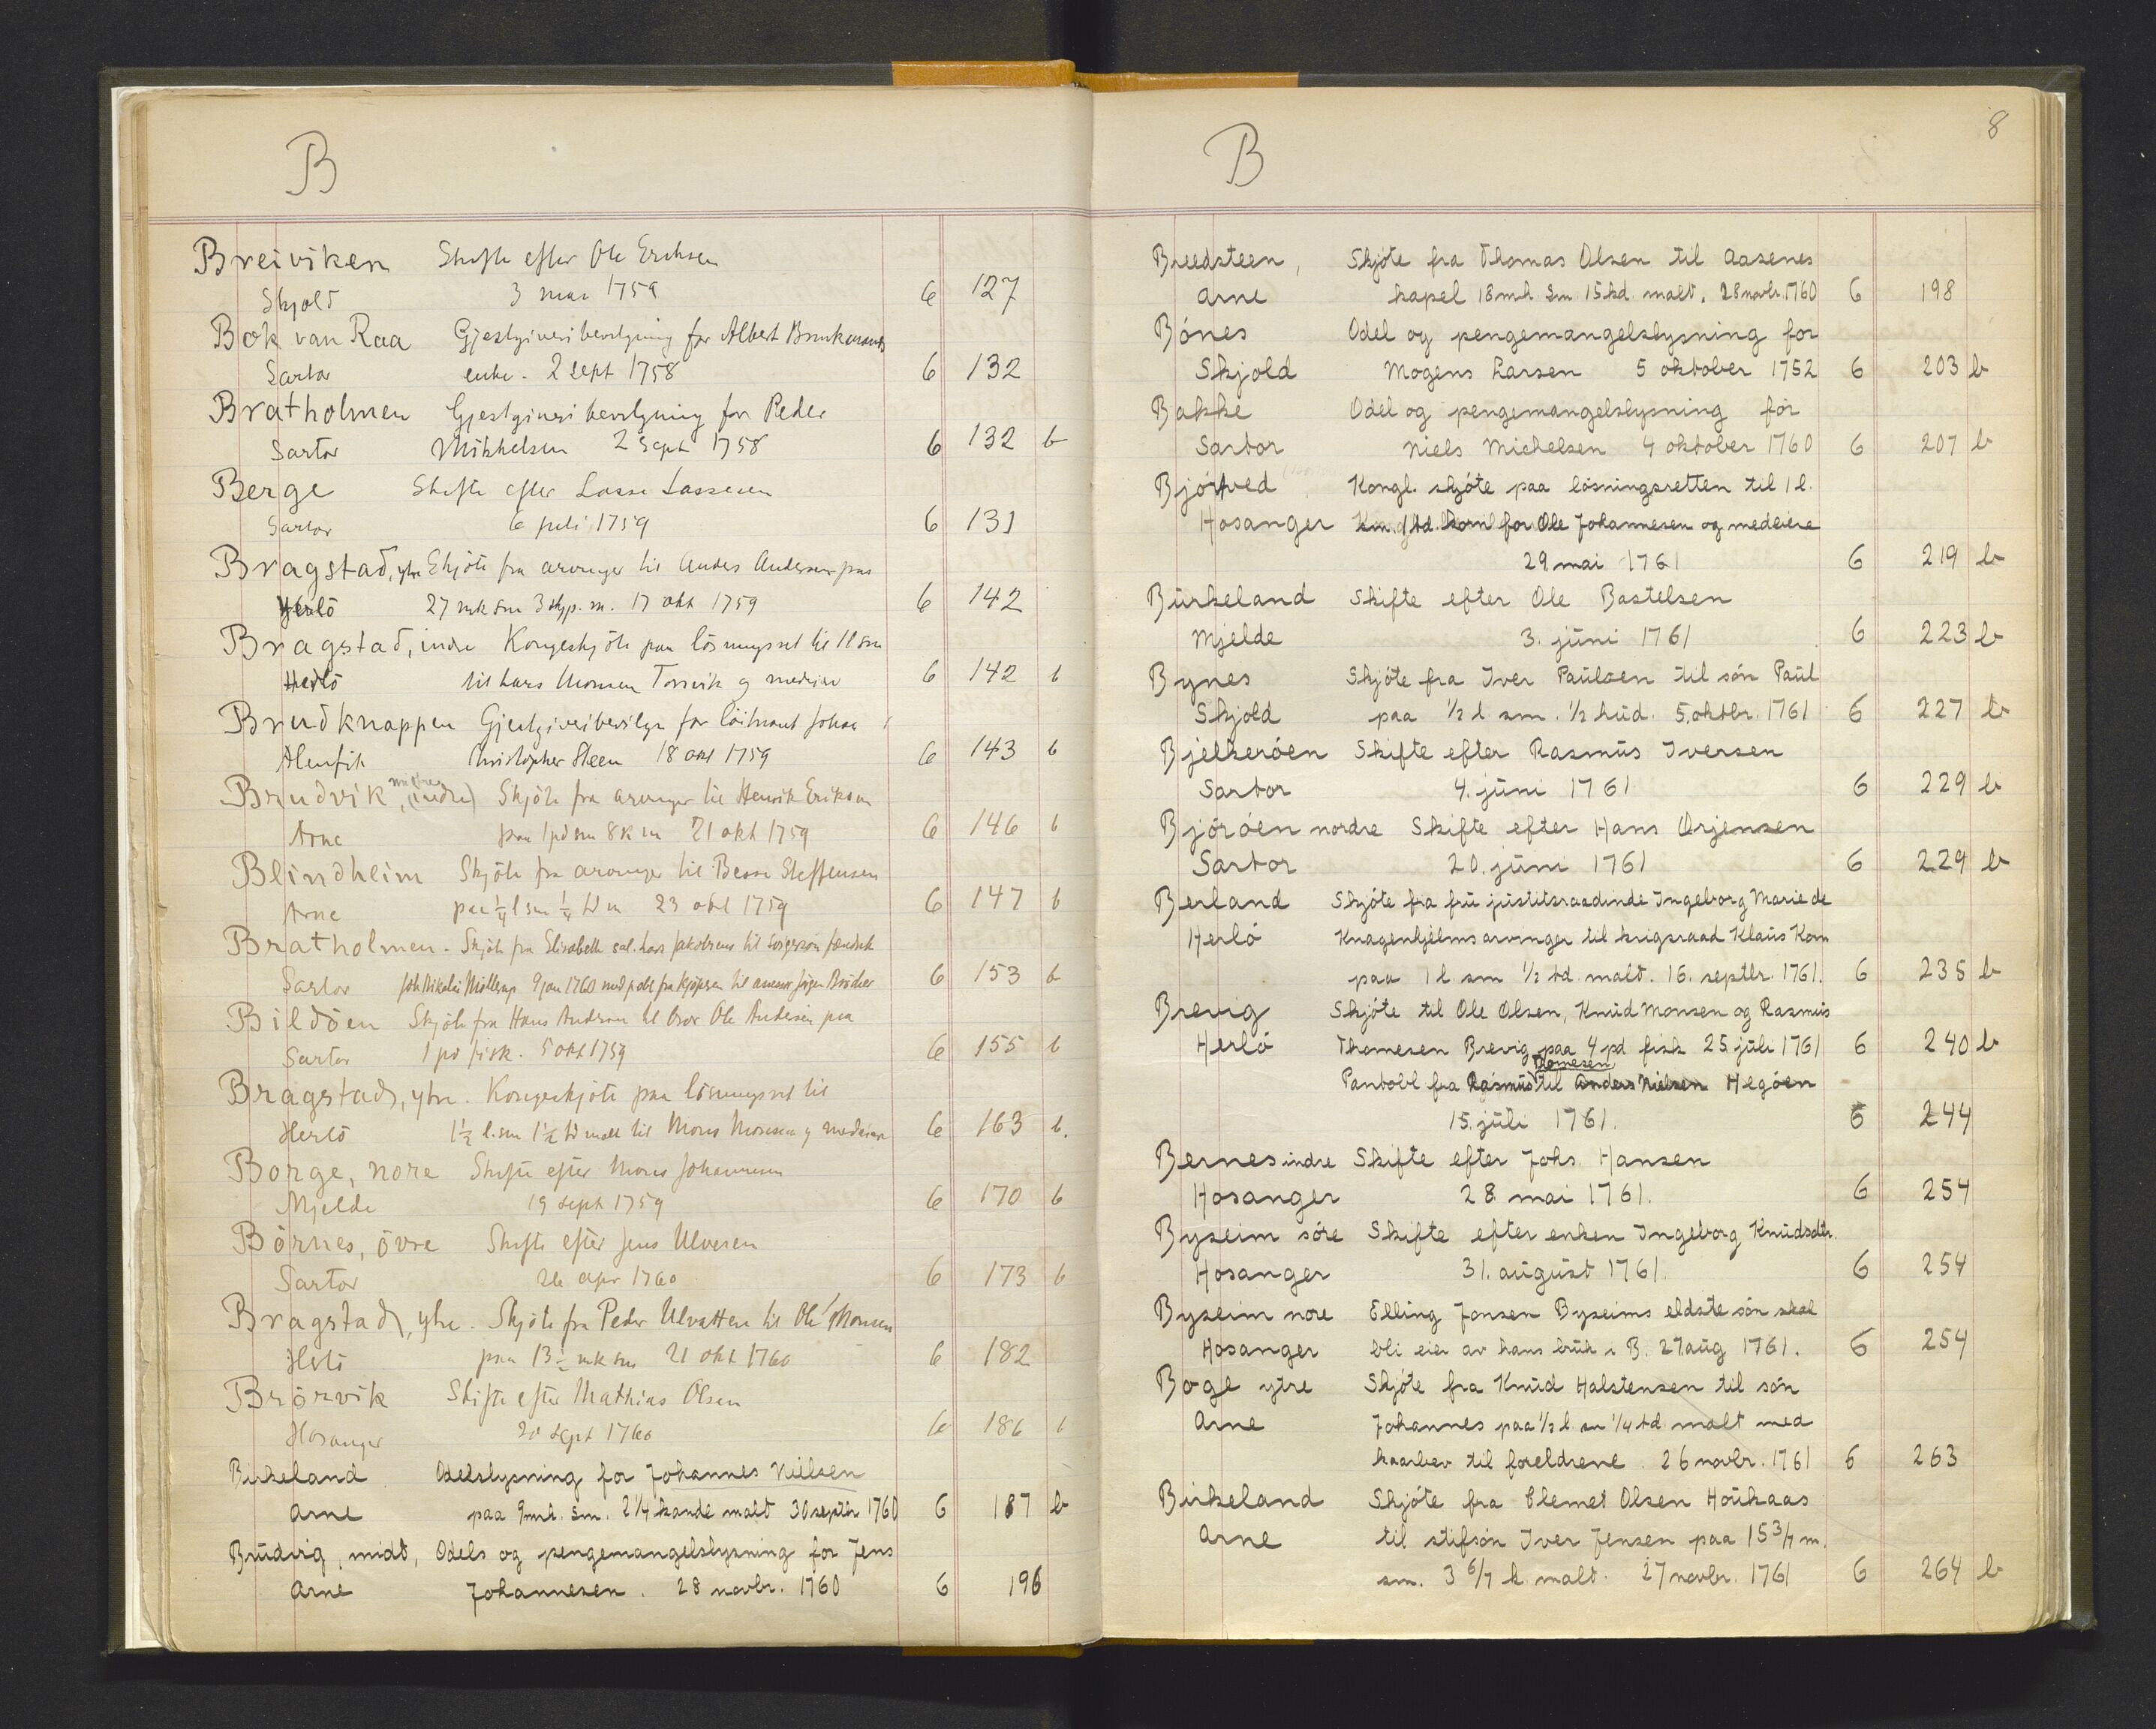 B
Breiviken Skifte efter Ole Erichsen
Skjold 3 mar 1759 6 127
Bok van Raa Gjestgiveribevilgning for Albert Brinkmans
Sartor enke. 2 sept 1758 6 132
Bratholmen Gjestgiveri bevilgning for Peder
Sartor Mikkelsen 2 sept 1758 6 132 b
Berge Skifte efter Lasse Lassesen
Sartor 6 juli 1759 6 131
Bragstad, ytre Skjöte fra arvinger til Anders Andersen paa
Herlö 27 mk sm 3 skjp. m. 17 okt 1759 6 142
Bragstad, indre Kongeskjöte paa lösningsret til 1 l sm
Herlö til Lars Monsen Torsvik og medeiere 6 142 b
Brudknappen Gjestgiveribevilgn for löitnant Johan
Alenfit Christopher Steen 18 okt 1759 6 143 b
Brudvik, midtre (indre) Skjöte fra arvinger til Henrik Erikson
Arne paa 1 pd sm 8 K m 21 okt 1759 6 146 b
Blindheim Skjöte fra arvinger til Besse Steffensen
Arne paa 1/4 l sm 1/4 td m 23 okt 1759 6 147 b
Bratholmen. Skjöte fra Elisabeth sal. Lars Jakobsens til svigersön fændrik
Sartor Joh Nikolai Möllerup 9 jan 1760 med pobl fra kjöperen til assessor Jörgen Bröcher 6 153 b
Bildöen Skjöte fra Hans Andersen til bror Ole Andersen paa
Sartor 1 pd fisk. 5 okt 1759 6 155 b
Bragstad, ytre. Kongeskjöte paa lösningsret til
Herlö 1 1/2 l. sm 1 1/2 td malt til Mons Monsen og medeiere 6 163 b.
Borge, nore Skifte efter Mons Johannesen
Mjelde 19 sept 1759 6 170 b
Börnes, övre Skifte efter Jens Ulvesen
Sartor 26 apr 1760 6 173 b
Bragstad, ytre. Skjöte fra Peder Ulvatten til Ole Monsen
Herlö paa 13 1/2 mk sm 21 okt 1760 6 182
Brörvik Skifte efter Mathias Olsen
Hosanger 20 sept 1760 6 186 b
Birkeland Odelslysning for Johannes Nielsen
Arne paa 9 mk. sm. 2 1/4 kande malt 30 septbr 1760 6 187 b
Brudvig, midt, Odels og pengemangelslysning for Jens
Arne Johannesen. 28 novbr. 1760 6 196
8
B
Breedsteen, Skjöte fra Thomas Olsen til Aasenes
Arne kapel 18 mk sm 15 kd. malt. 28 novbr. 1760 6 198
Bönes Odel og pengemangelslysning for
Skjold Mogens Larsen 5 oktober 1752 6 203 b
Bakke Odel og pengemangelslysning for
Sartor Niels Michelsen 4 oktober 1760 6 207 b
Bjørtved Kongl. skjöte paa lösningsretten til 1 l.
Hosanger sm. 1 td. korn for Ole Johannesen og medeiere
29 mai 1761 6 219 b
Burkeland Skifte efter Ole Bastelsen
Mjelde 3. juni 1761 6 223 b
Bynes Skjöte fra Iver Paulsen til sön Paul
Skjold paa 1/2 l sm. 1/2 hud. 5. oktbr. 1761 6 227 b
Bjelkeröen Skifte efter Rasmus Iversen
Sartor 4. juni 1761 6 229 b
Björöen nordre Skifte efter Hans Ørjensen
Sartor 20. juni 1761 6 229 b
Berland Skjöte fra fru justitsraadinde Ingeborg Marie de
Herlö Knagenhjelms arvinger til krigsraad Klaus Kom
paa 1 l sm 1/2 td. malt. 16. septbr. 1761. 6 235 b
Brevig Skjöte til Ole Olsen, Knud Monsen og Rasmus
Herlö Thomesen Brevig paa 4 pd fisk 25 juli 1761 6 240 b
Pantobl fra Rasmus Thomesen til Anders Nielsen Hegöen
15. juli 1761. 6 244
Bernes indre Skifte efter Johs. Hansen
Hosanger 28 mai 1761. 6 254
Byseim söre Skifte efter enken Ingeborg Knudsdtr.
Hosanger 31. august 1761. 6 254
Byseim nore Elling Jonsen Byseims eldste sön skal
Hosanger bli eier av hans bruk i B. 27 aug 1761. 6 254
Boge ytre Skjöte fra Knud Halstensen til sön
Arne Johannes paa 1/2 l. sm 1/4 td malt med
kaarbev til foreldrene. 26 novbr. 1761 6 263
Birkeland Skjöte fra Clemet Olsen Houkaas
Arne til stifsön Iver Jensen paa 15 3/7 m.
sm. 3 6/7 k. malt. 27 novbr. 1761 6 264 b